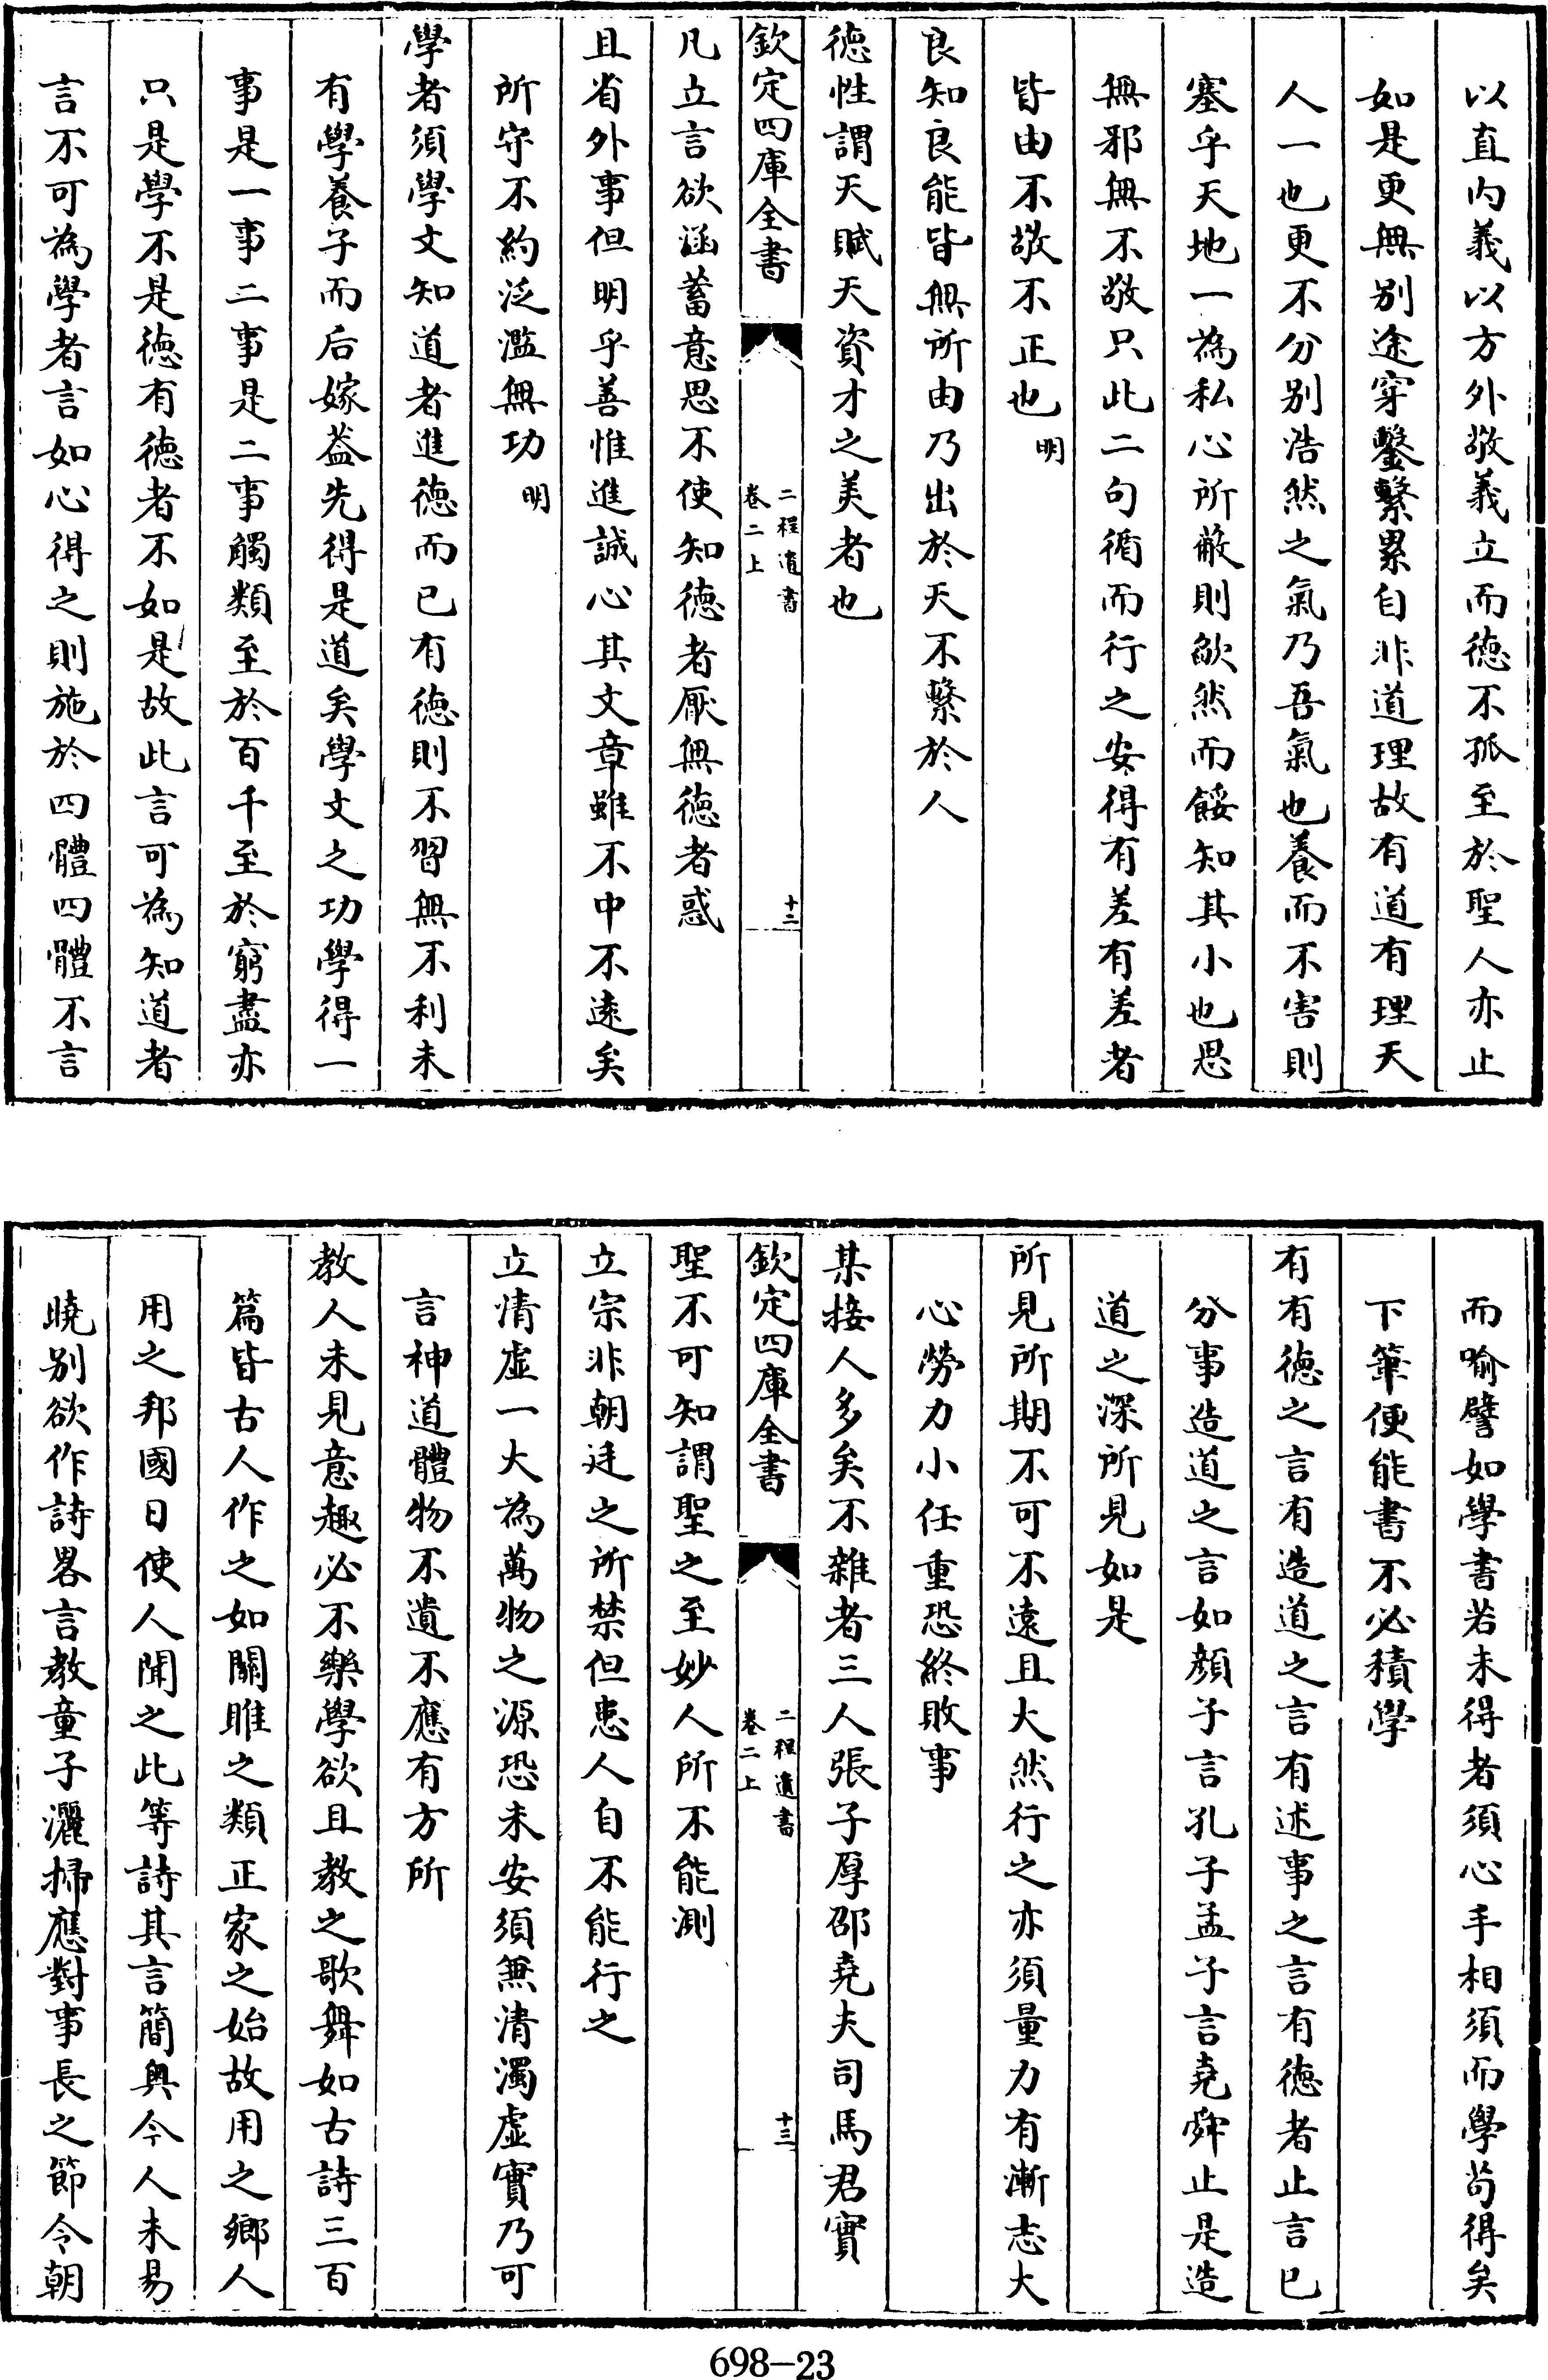 以直内義以方外敬義立而徳不孤至於聖人亦止
如是更無别途穿鑿繫累自非道理故有道有理天
人一也更不分别浩然之氣乃吾氣也養而不害則
塞乎天地一為私心所蔽則欿然而餒知其小也思
無邪無不敬只此二句循而行之安得有差有差者
皆由不敬不正也明
良知良能皆無所由乃出於天不繫於人
徳性謂天賦天資才之美者也
欽定四庫全書
二程遺書
卷二上
十二
凡立言欲涵蓄意思不使知徳者厭無徳者惑
且省外事但明乎善惟進誠心其文章雖不中不逺矣
所守不約泛濫無功明
學者須學文知道者進徳而已有徳則不習無不利未
有學養子而后嫁葢先得是道矣學文之功學得一
事是一事二事是二事觸類至於百千至於窮盡亦
只是學不是徳有徳者不如是故此言可為知道者
言不可為學者言如心得之則施於四體四體不言
而喻譬如學書若未得者須心手相須而學苟得矣
下筆便能書不必積學
有有徳之言有造道之言有述事之言有徳者止言已
分事造道之言如顔子言孔子孟子言堯舜止是造
道之深所見如是
所見所期不可不遠且大然行之亦須量力有漸志大
心勞力小任重恐終敗事
某接人多矣不雜者三人張子厚邵堯夫司馬君實
欽定四庫全書
二程遺書
卷二上
十三
聖不可知謂聖之至妙人所不能測
立宗非朝廷之所禁但患人自不能行之
立清虚一大為萬物之源恐未安須兼清濁虚實乃可
言神道體物不遺不應有方所
教人未見意趣必不樂學欲且教之歌舞如古詩三百
篇皆古人作之如關雎之類正家之始故用之鄉人
用之邦國日使人聞之此等詩其言簡奥今人未易
曉别欲作詩畧言教童子灑掃應對事長之節令朝
698-23